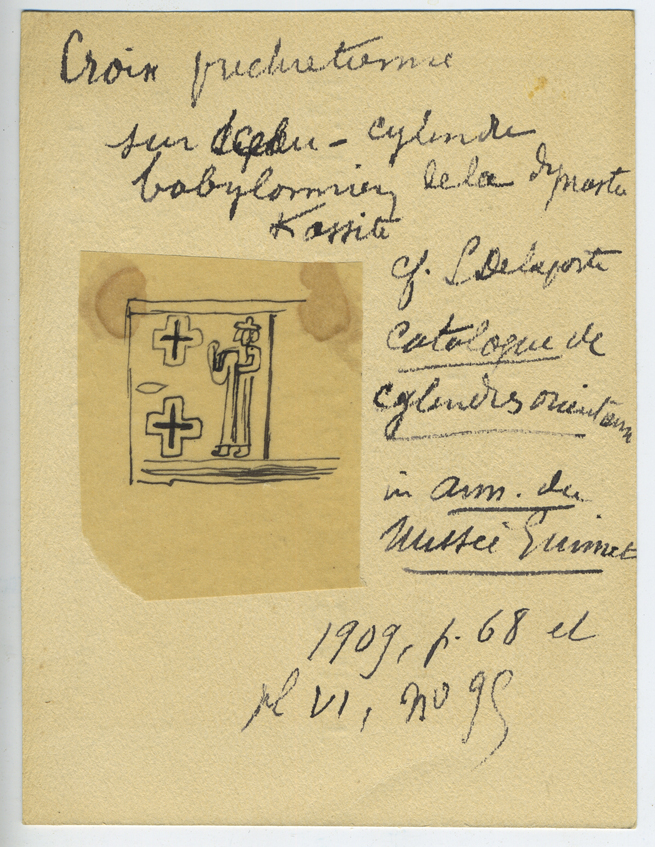 Croix préchretienne
sur - cylindre
babylonnien de la dynastie
Kassite
cf. L Delaporte
catalogue de
cylindres orientaux
in ann. du
Musée Guimet
1909, p. 68 et
pl VI, no 95